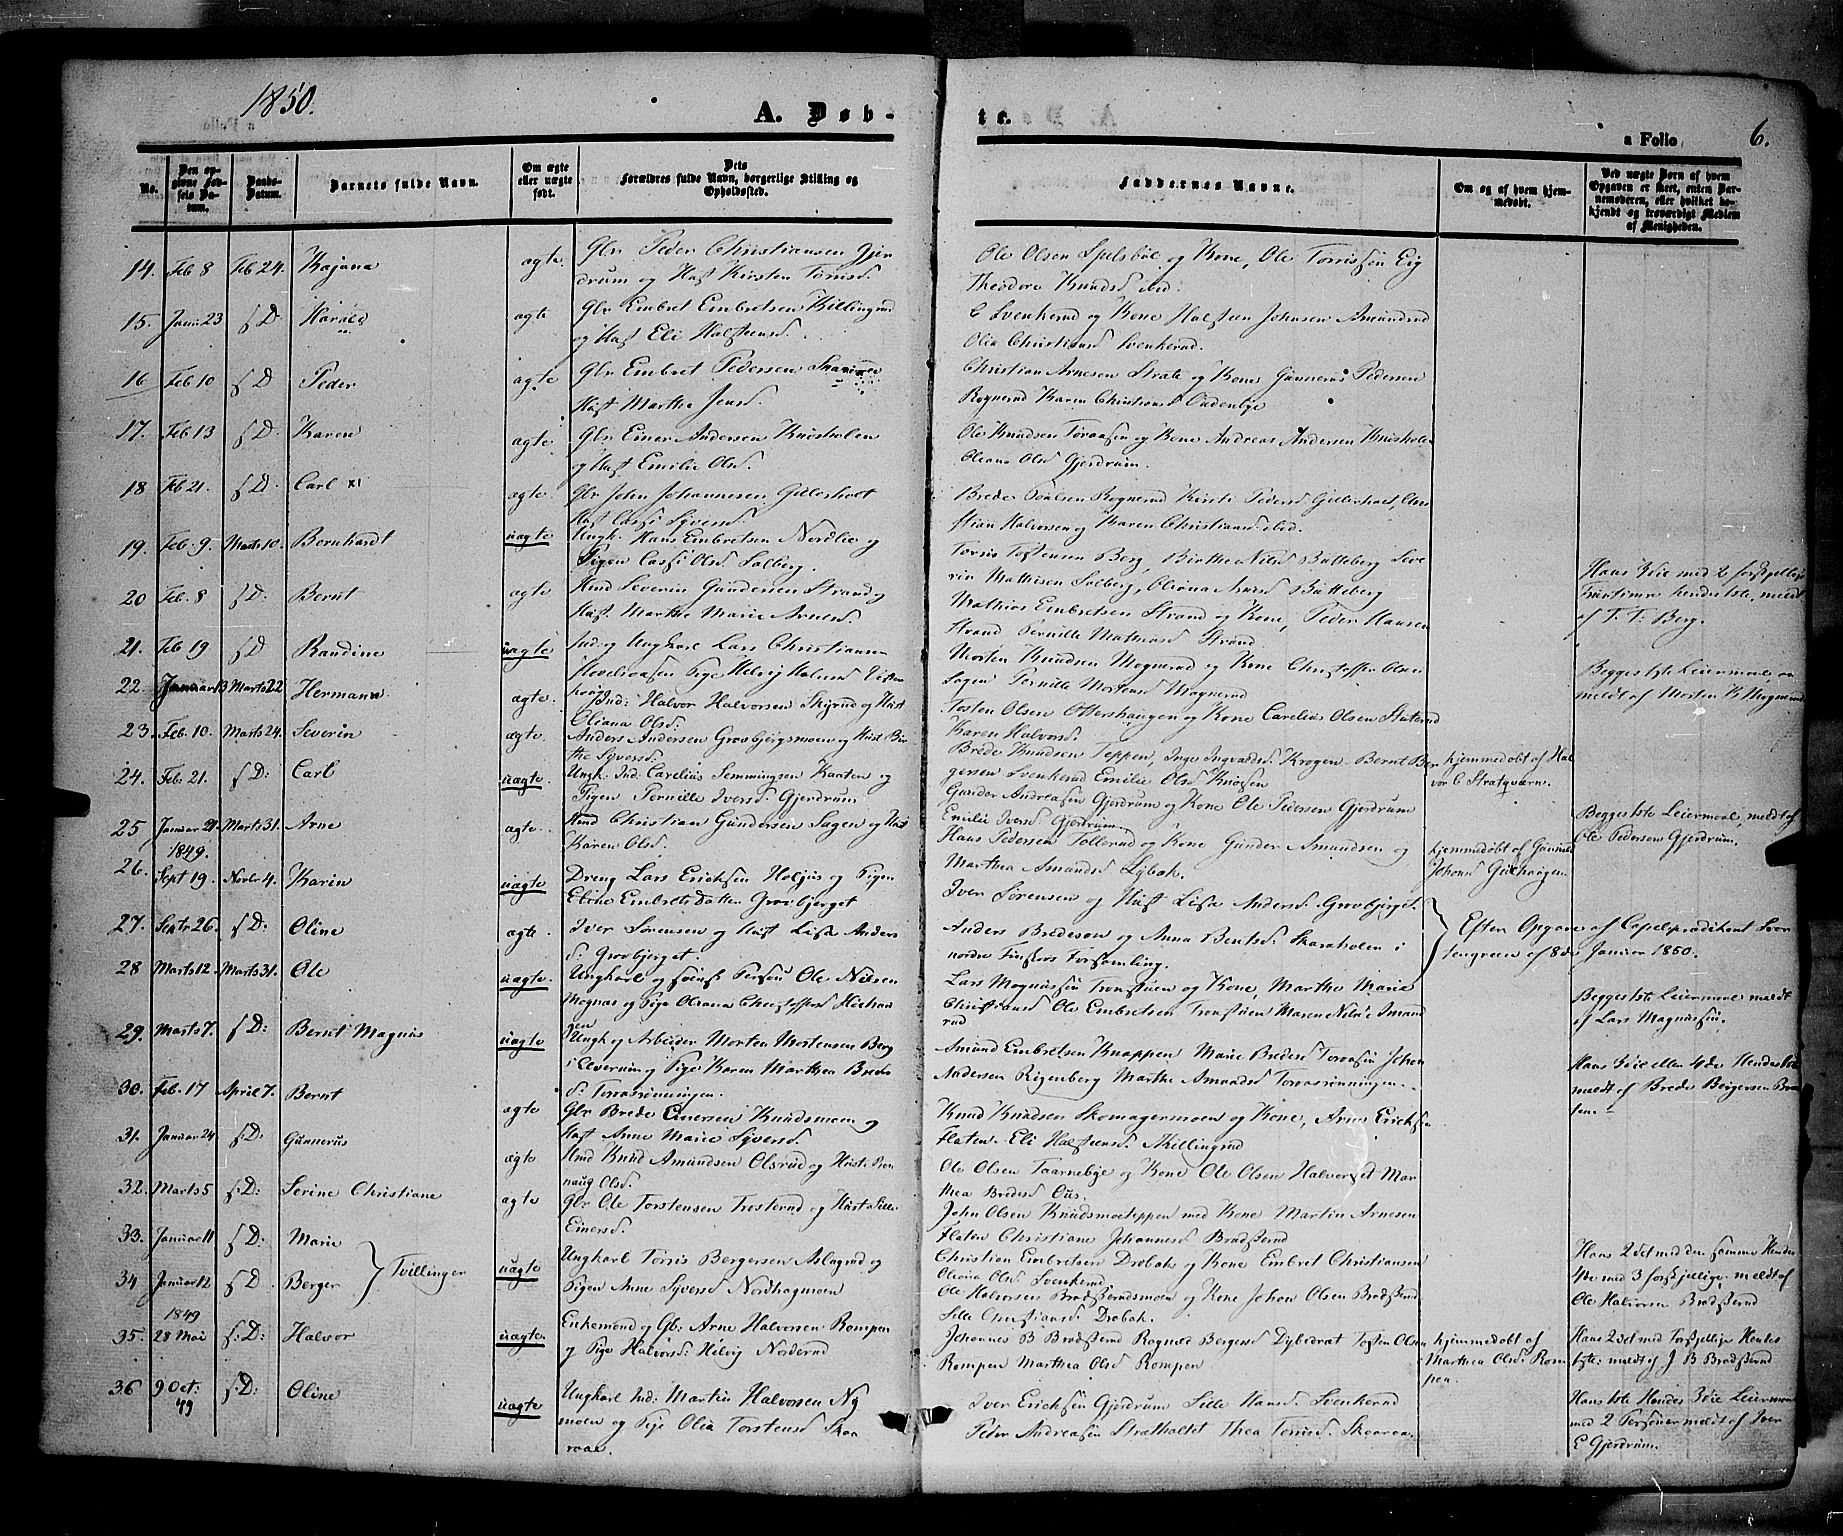 1850.
A. Døb-
te.
a Folio 6.
No. | Den opgivne Fødsels Datum. | Daabs-Datum. | Barnets fulde Navn. | Om ægte eller uægte født. | Dets Forældres fulde Navn, borgerlige Stilling og Opholdssted. | Faddernes Navne. | Om og af hvem hjemmedøbt. | Ved uægte Børn af hvem Opgaven er skeet, enten Barnemoderen, eller hvilket bekjendt og troværdigt Medlem af Menigheden.
14. Feb 8 Feb 24. Kajana ægte Gbr Peder Christiansen Gjer
drum og Hust Kirsten Tørrisd. Ole Olsen Spelsböl og Kone, Ole Torrissen Eig
Theodora Knudsd ibid:
15. Janu: 23 s D: Harald ægte Gbr Embret Embretsen Killingrud
og Hust Eli Halsteensd. E Svenkerud og Kone Halsteen Johnsen Amundrud
Olia Christiansd Svenkerud.
16 Feb 10 s D Peder ægte Gbr Embret Pedersen
Hust Martha Jensd. Christian Arnesen Strate og Kone Gunnerus Pedersen
Rognerud Karen Christiansd Oudenbye
17. Feb 13 s D. Karen ægte Gbr Einer Andersen Knusholen
og Hust Emilie Olsd. Ole Knudsen Toraasen og Kone Andreas Andersen Knusholen
Oleana Olsd Gjerdrum.
18 Feb 21. s D. Carl ægte Gbr John Johannesen Gillesholt
Hust Cassi Syversd. Brede Rognerud Kirsti Pedersd Gillesholt, Chri
stian Halvorsen og Karen Christiansd ibid.
19. Feb. 9. Marts 10. Bernhardt uægte Ungk. Hans Embretsen Nordlie og
Pigen Cassi Olsd Solberg. Torris Tostensen Berg, Birthe Nilsd Batteberg Seve
rin Mathisen Solberg, Oleana Arnesd Batteberg
Hans 3die med 2 forskjellige
Fruentimre hendes 1ste, meldt
af T. T. Berg.
20 Feb. 8 s D: Bernt ægte Hmd Severin Gundersen Strand og
Hust Marthe Marie Arnesd. Mathias Embretsen Strand og Kone, Peder Hansen
Strand Pernille Mathiasd Strand
21. Feb 19 s D Randine uægte Ind og Ungkarl Lars Christiansen
Pige Helvig Halvorsd Morten Knudsen Mognerud og Kone Christopher Olsen
Sagen Pernille Mortensd Mognerud
Begges 1ste Leiermaal
meldt af Morten K Mognerud
22. Januar 13 Marts 22 Herman ægte. Ind: Halvor Halvorsen Skyrud og Hust
Oliana Olsd. Tosten Olsen Ottershaugen og Kone Carelius Olsen Staterud
Karen Halvorsd.
23. Feb. 10. Marts 24. Severin ægte. Anders Andersen Grovbjergsmoen og Hust Bir
the Syversd. Brede Knudsen Teppen, Inge Ingvaldsd. Krogen. Bernt Ber
gersen Svenkerud Emilie Olsd Knøsen
hjemmedøbt af Hal
vor C Stratqværn.
24. Feb: 21. s D: Carl uægte. Ungk. Ind: Carelius Semmingsen Kaaten og
Pigen Pernille Iversd. Gjerdrum Gunder Andreasen Gjerdrum og Kone Ole Pedersen Gjerdrum
Emilie Iversd Gjerdrum.
Begges 1ste Leiermaal, meldt af
Ole Pedersen Gjerdrum.
25 Januar 21. Marts 31. Arne ægte Hmd Christian Gundersen Sagen og Hust
Karen Olsd. Hans Pedersen Tollerud og Kone Gunder Amundsen og
Marthea Amundsd Lybak.
hjemmedøbt af Gunnild
Johansd Gulhaugen
26. 1849. Sept 19. Novbr 4. Karin uægte Dreng Lars Ericksen Holjus og Pigen
Eline Embrets Datter Grovbjerget Iver Sørensen og Hust Lisa Andersd. Grovbjerget.
27. Septr 26. s D: Oline ægte. Iver Sørensen og Hust Lisa Anders
d. Grovbjerget. Anders Bredeson og Anna Bentsd. Skaraholen i
nordre Finskovs Forsamling.
Efter Opgave af Capelprædikant Sver
tengreen af 8de Januar 1850.
28 Marts 12. Marts 31. Ole uægte. Ungkarl og Ole Nielsen
Mognas og Pige Oleana Christophersd Lars Magnussen Tronstuen og Kone, Martha Maria
Christiansd Ole Embretsen Tronstuen Maren Nilsd Amund
rud
Begges 1ste Leiermaal meldt
af Lars Magnussen.
29. Marts 7. s D: Bernt Magnus uægte Ungk og Arbeider Morten Mortensen Berg
i Elverum og Pige Karen Marthea Brede
d. Torrasrønningen. Amund Embretsen Knappen Marie Bredesd Toraasen Johan
Andersen Rigenberg Marthe Amundsd Torrasrønningen.
Hans 3die eller 4de Hendes
meldt af Brede Bergersen
30. Feb. 17 April 7. Bernt ægte Gbr Brede Einersen Knudsmoen og
Hust Anne Marie Syversd. Knud Knudsen Skomagersmoen og Kone, Arne Ericksen
Flaten. Eli Halsteensd. Killingrud
31. Januar 24 s D: Gunnerus ægte Hmd Knud Amundsen Olsrud og Hust: Ron
naug Olsd. Ole Olsen Taarnebye og Kone Ole Olsen Halvorset Mar
thea Bredesd Ous.
32. Marts 5 s: D: Serine Christiane ægte Gbr Ole Torstensen Trosterud og Hust: Sille
Einersd. John Olsen Knudsmoeteppen med Kone Martin Arnesen
Flaten Christiane Johannesd Bradsterud
33. Januar 11 s D: Marie
34 Januar 12 s D: Berger
Tvillinger uægte Ungkarl Torris Bergersen Aslagrud og
Pigen Anne Syversd Nordhagmoen Christian Embretsen Drobak og Kone Embret Christiansen
Oleana Olsd Svenkerud
Ole Halvorsen Bradsterudsmoen og Kone Johan Olsen Bradsterud
Sille Christiansd. Drobak.
Hans 2det med den samme Hendes
4de med 3 forskjellige. meldt af
Ole Halvorsen Bradsterud
35. 1849 28 Mai s: D: Halvor uægte Enkemand og Gb: Arne Halvorsen Rompen
og Pige Halvorsd: Helvig Norderud Johannes B Bradsterud Ragnild Bergersd Dybedrat Tosten Olsen
Rompen Marthea Olsd Rompen
hjemmedøbt af
Marthea Olsd. Rom
pen.
Hans 2det med Forskjellige Hendes
1ste: meldt af J B Bradsterud
36 9 Oct: 49 s: D: Oline uægte Ungkarl Ind: Martin Halvorsen Ny
moen og Pige Olia Torstensd Skaa
raa. Iver Ericksen Gjerdrum Sille Hansd. Svenkerud
Peder Andreasen Stratholtet Thea Torrisd. Skaaraa.
Hans 1ste Hendes 3die Leiermaal
med 2 Personer meldt af Iver
E Gjerdrum.